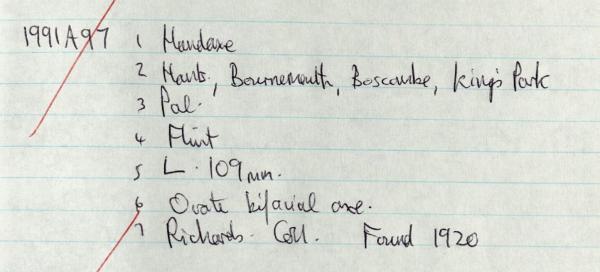 1991A97 1 Handaxe
2 Hants., Bournemouth, Boscombe, King's Park
3 Pal.
4 Flint
5 L. 109mm.
6 Ovate bifacial axe.
7 Richards. Coll. Found 1920